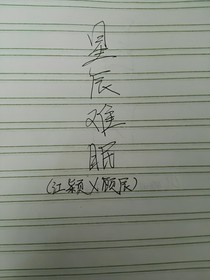 星辰难眠
(江颖X顾辰)